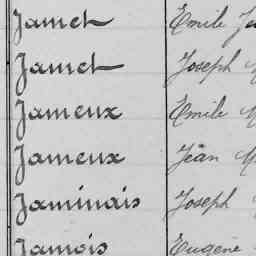 Jamet Emile
Jamet Joseph
Jameux Emile
Jameux Jean
Jaminais Joseph
Jamois Eugène